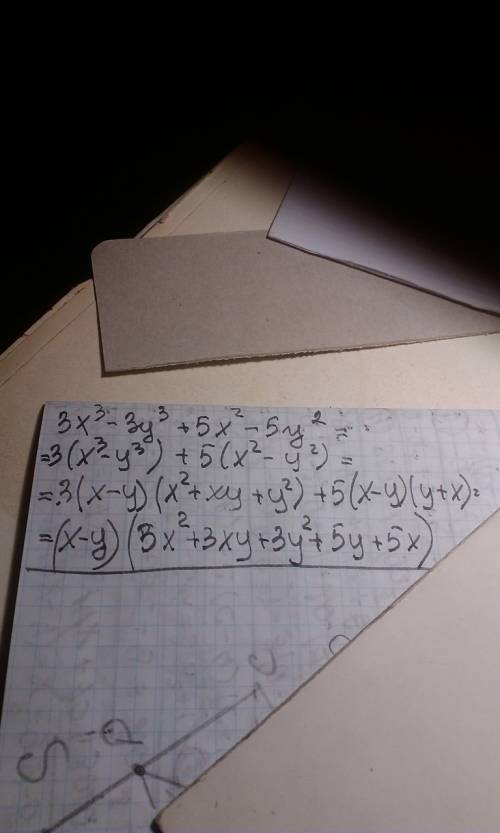 3x³ - 3y³ + 5x² - 5y² =
=3(x³-y³) + 5(x²-y²) =
=3(x-y)(x²+xy+y²)+5(x-y)(y+x)=
=(x-y)(3x²+3xy+3y²+5y+5x)
S
P
C